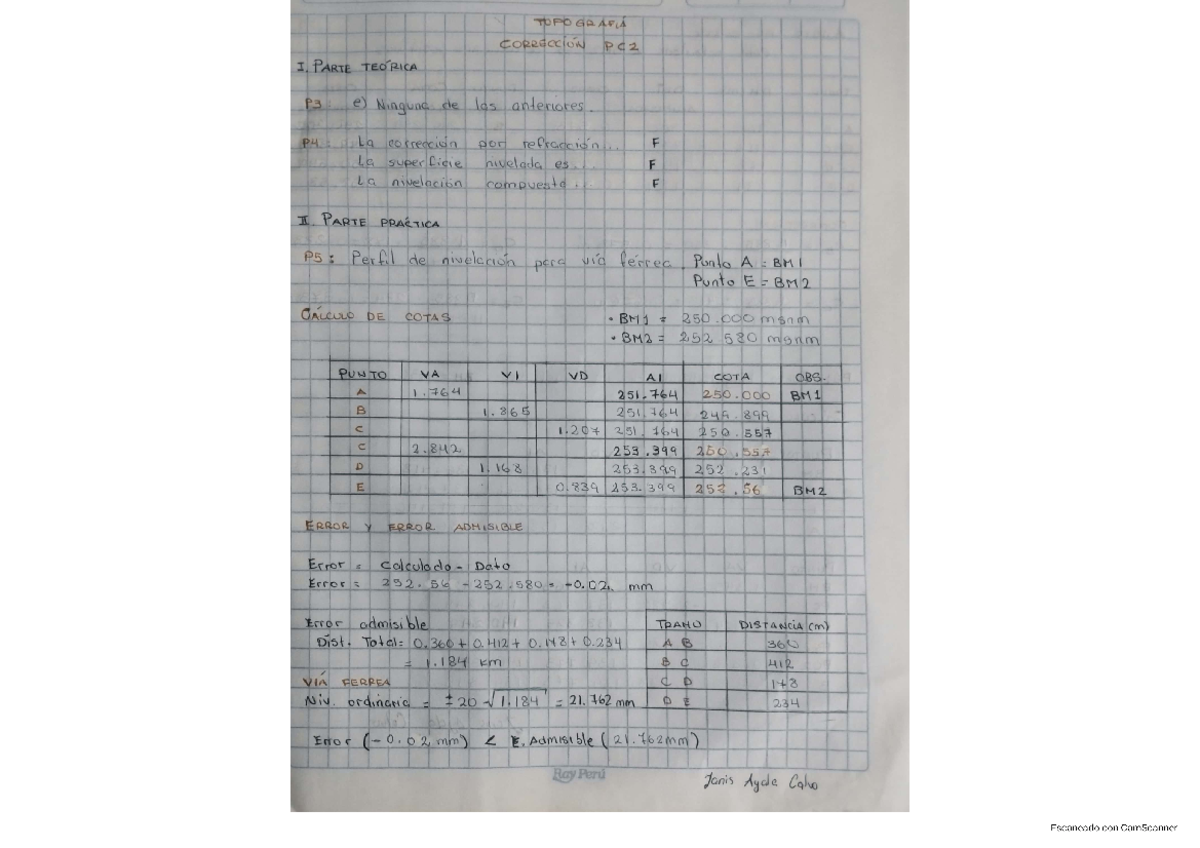 TOPOGRAFÍA
CORRECCIÓN PC2
I. PARTE TEÓRICA
P3 e) Ninguna de las anteriores.
P4 La corrección por refracción... F
La superficie nivelada es... F
La nivelación compuesta... F
II. PARTE PRÁCTICA
P5: Perfil de nivelación para vía férrea Punto A = BM1
Punto E = BM2
CÁLCULO DE COTAS • BM1 = 250.000 msnm
• BM2 = 252.580 msnm
PUNTO VA VI VD AI COTA OBS.
A 1.764 251.764 250.000 BM1
B 1.865 251.764 249.899
C 1.207 251.764 250.557
C 2.842 253.399 250.557
D 1.168 253.399 252.231
E 0.839 253.399 252.56 BM2
ERROR Y ERROR ADMISIBLE
Error = Calculado - Dato
Error = 252.56 - 252.580 = -0.02 mm
Error admisible
Dist. Total = 0.360 + 0.412 + 0.178 + 0.234
= 1.184 km
VÍA FERREA
Niv. ordinaria = ±20 √1.184 = 21.762 mm
TRAMO DISTANCIA (m)
A B 360
B C 412
C D 178
D E 234
Error (-0.02 mm) < E. Admisible (21.762mm)
Ray Perú
Janis Ayde Calvo
Escaneado con CamScanner